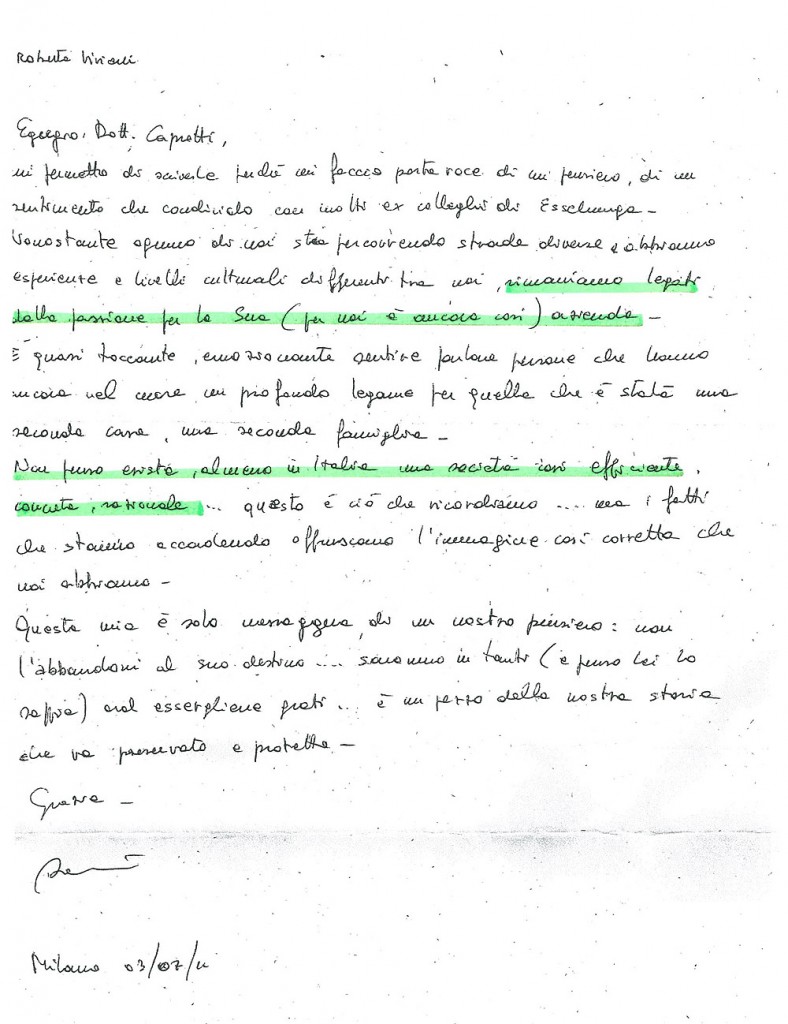 Roberta Viviani
Egregio Dott. Caprotti,
mi permetto di scriverle perché mi faccio porta voce di un pensiero, di un
sentimento che condivido con molti ex colleghi di Esselunga -
Nonostante ognuno di noi stia percorrendo strade diverse e abbiamo
esperienze e livelli culturali differenti tra noi, rimaniamo legati
dalla passione per la Sua (per noi è ancora così) azienda -
È quasi toccante, emozionante sentire parlare persone che hanno
ancora nel cuore un profondo legame per quella che è stata una
seconda casa, una seconda famiglia -
Non penso esista, almeno in Italia una società così efficiente,
concreta, razionale ... questo è ciò che ricordiamo .... ma i fatti
che stanno accadendo offuscano l'immagine così corretta che
noi abbiamo -
Questa mia è solo messaggera di un nostro pensiero: non
l'abbandoni al suo destino .... saranno in tanti (e penso Lei lo
sappia) ad essergliene grati ... è un pezzo della nostra storia
che va preservato e protetto -
Grazie -
Milano 03/07/11